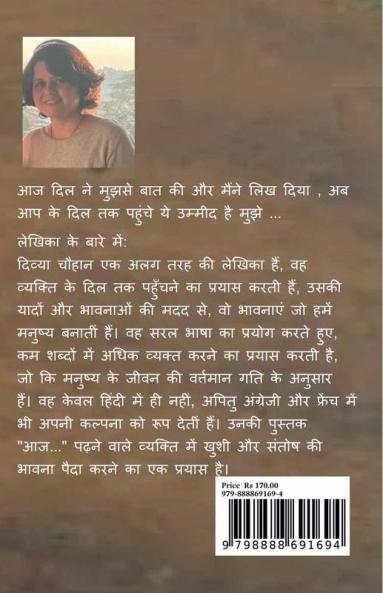 आज दिल ने मुझसे बात की और मैंने लिख दिया , अब
आप के दिल तक पहुंचे ये उम्मीद है मुझे ...
लेखिका के बारे में:
दिव्या चौहान एक अलग तरह की लेखिका हैं, वह
व्यक्ति के दिल तक पहुँचने का प्रयास करती हैं, उसकी
यादों और भावनाओं की मदद से, वो भावनाएं जो हमें
मनुष्य बनातीं हैं। वह सरल भाषा का प्रयोग करते हुए,
कम शब्दों में अधिक व्यक्त करने का प्रयास करती है,
जो कि मनुष्य के जीवन की वर्तमान गति के अनुसार
हैं। वह केवल हिंदी में ही नहीं, अपितु अंग्रेजी और फ्रेंच में
भी अपनी कल्पना को रूप देतीं हैं। उनकी पुस्तक
"आज..." पढ़ने वाले व्यक्ति में खुशी और संतोष की
भावना पैदा करने का एक प्रयास है।
Price Rs 170.00
979-888869169-4
9 798888 691694